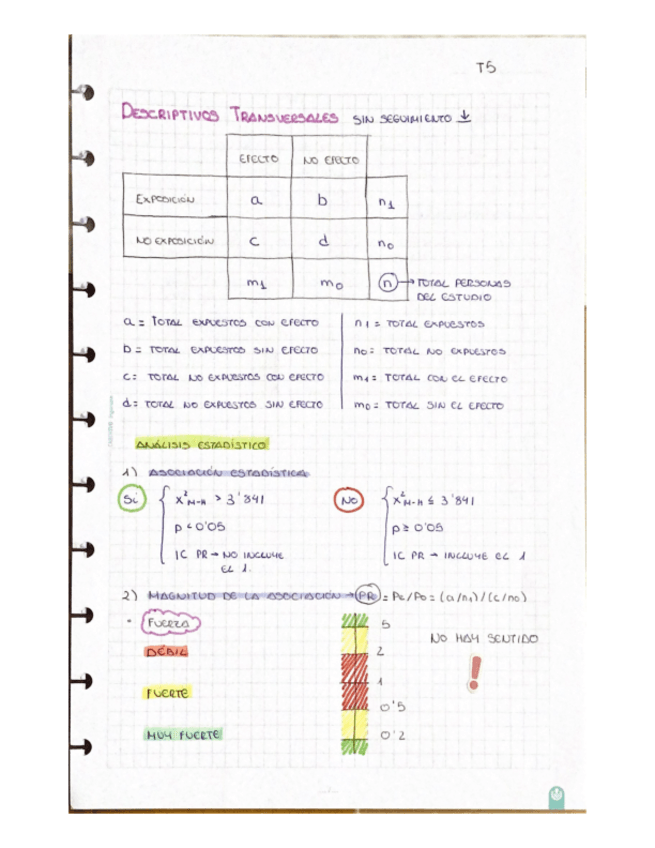 T5
DESCRIPTIVOS TRANSVERSALES SIN SEGUIMIENTO ↓
EFECTO NO EFECTO
EXPOSICIÓN a b n1
NO EXPOSICIÓN c d n0
m1 m0 n → TOTAL PERSONAS
DEL ESTUDIO
a = TOTAL EXPUESTOS CON EFECTO
b = TOTAL EXPUESTOS SIN EFECTO
c = TOTAL NO EXPUESTOS CON EFECTO
d = TOTAL NO EXPUESTOS SIN EFECTO
n1 = TOTAL EXPUESTOS
n0 = TOTAL NO EXPUESTOS
m1 = TOTAL CON EL EFECTO
m0 = TOTAL SIN EL EFECTO
ANÁLISIS ESTADÍSTICO
1) ASOCIACIÓN ESTADÍSTICA
SÍ
X²M-H > 3'841
p < 0'05
IC PR → NO INCLUYE
EL 1.
NO
X²M-H ≤ 3'841
p ≥ 0'05
IC PR → INCLUYE EL 1
2) MAGNITUD DE LA ASOCIACIÓN → PR = Pe/Po = (a/n1)/(c/n0)
• FUERZA
DÉBIL
FUERTE
MUY FUERTE
5
2
1
0'5
0'2
NO HAY SENTIDO
!